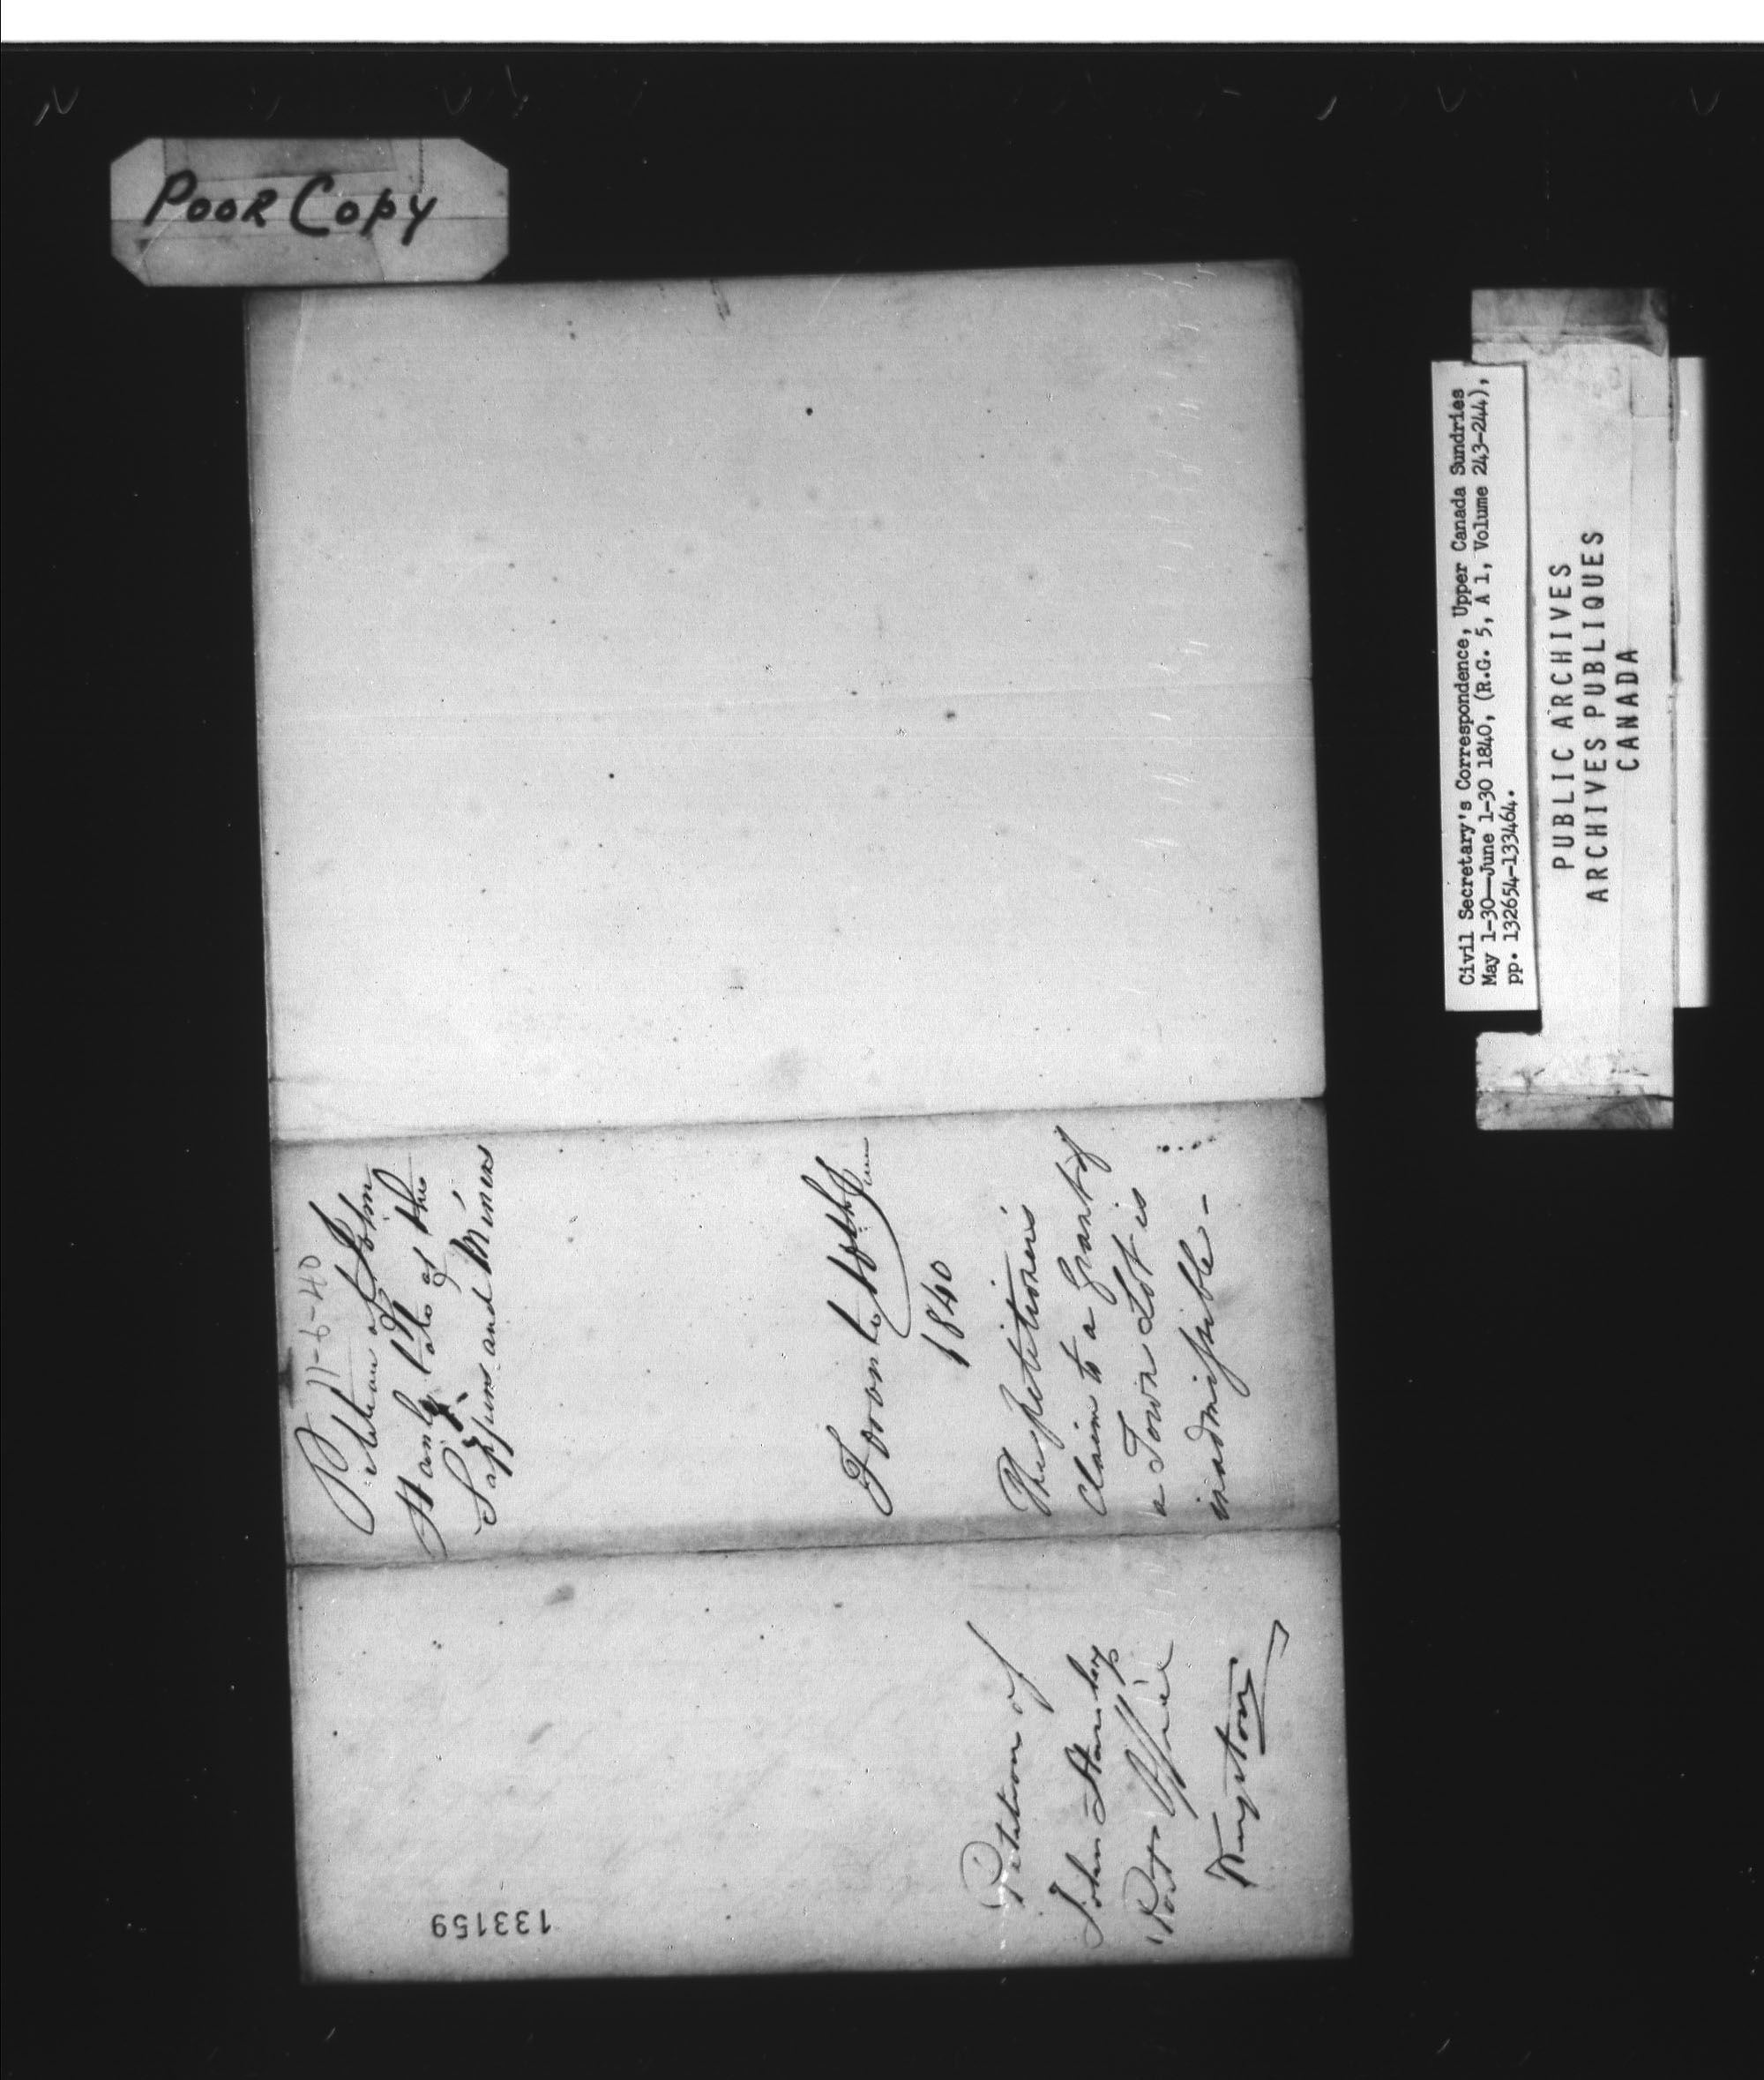 POOR COPY
11-6-40
Petition of John
Hanly late of the
Sappers and Miners
Toronto
1840
The petitioner's
Claim to a Grant of
a Town Lot is
inadmissible -
Petition of
John
Post Office
Kingston
133159
Civil Secretary's Correspondence, Upper Canada Sundries
May 1-30—June 1-30 1840, (R.G. 5, A 1, Volume 243-244),
pp. 132654-133464.
PUBLIC ARCHIVES
ARCHIVES PUBLIQUES
CANADA